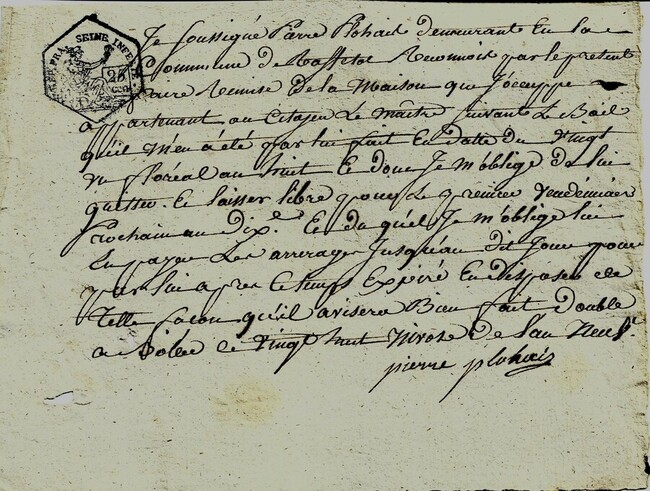 SEINE INFER
25
Je Soussigné Pierre Plohais demeurant En la
Commune de Raffetot Reconnois par le present
faire Remise de la Maison que J'occuppe
appartenant au Citoyen Le Maître suivant Le Bail
qu'il m'en a été par lui fait En datte du Vingt
un floréal an huit Et dont Je m'oblige de lui
quitter Et laisser libre pour Le premier Vendémiaire
prochain an Dix. Et du quel Je m'oblige lui
En payer Les arrerages Jusqu'au dit Jour pour
par lui apres Ce temps Expiré En disposer de
telle façon qu'il avisera Bien fait Double
a Bolbec ce vingt huit Nivose de L'an Neuf.
pierre plohais